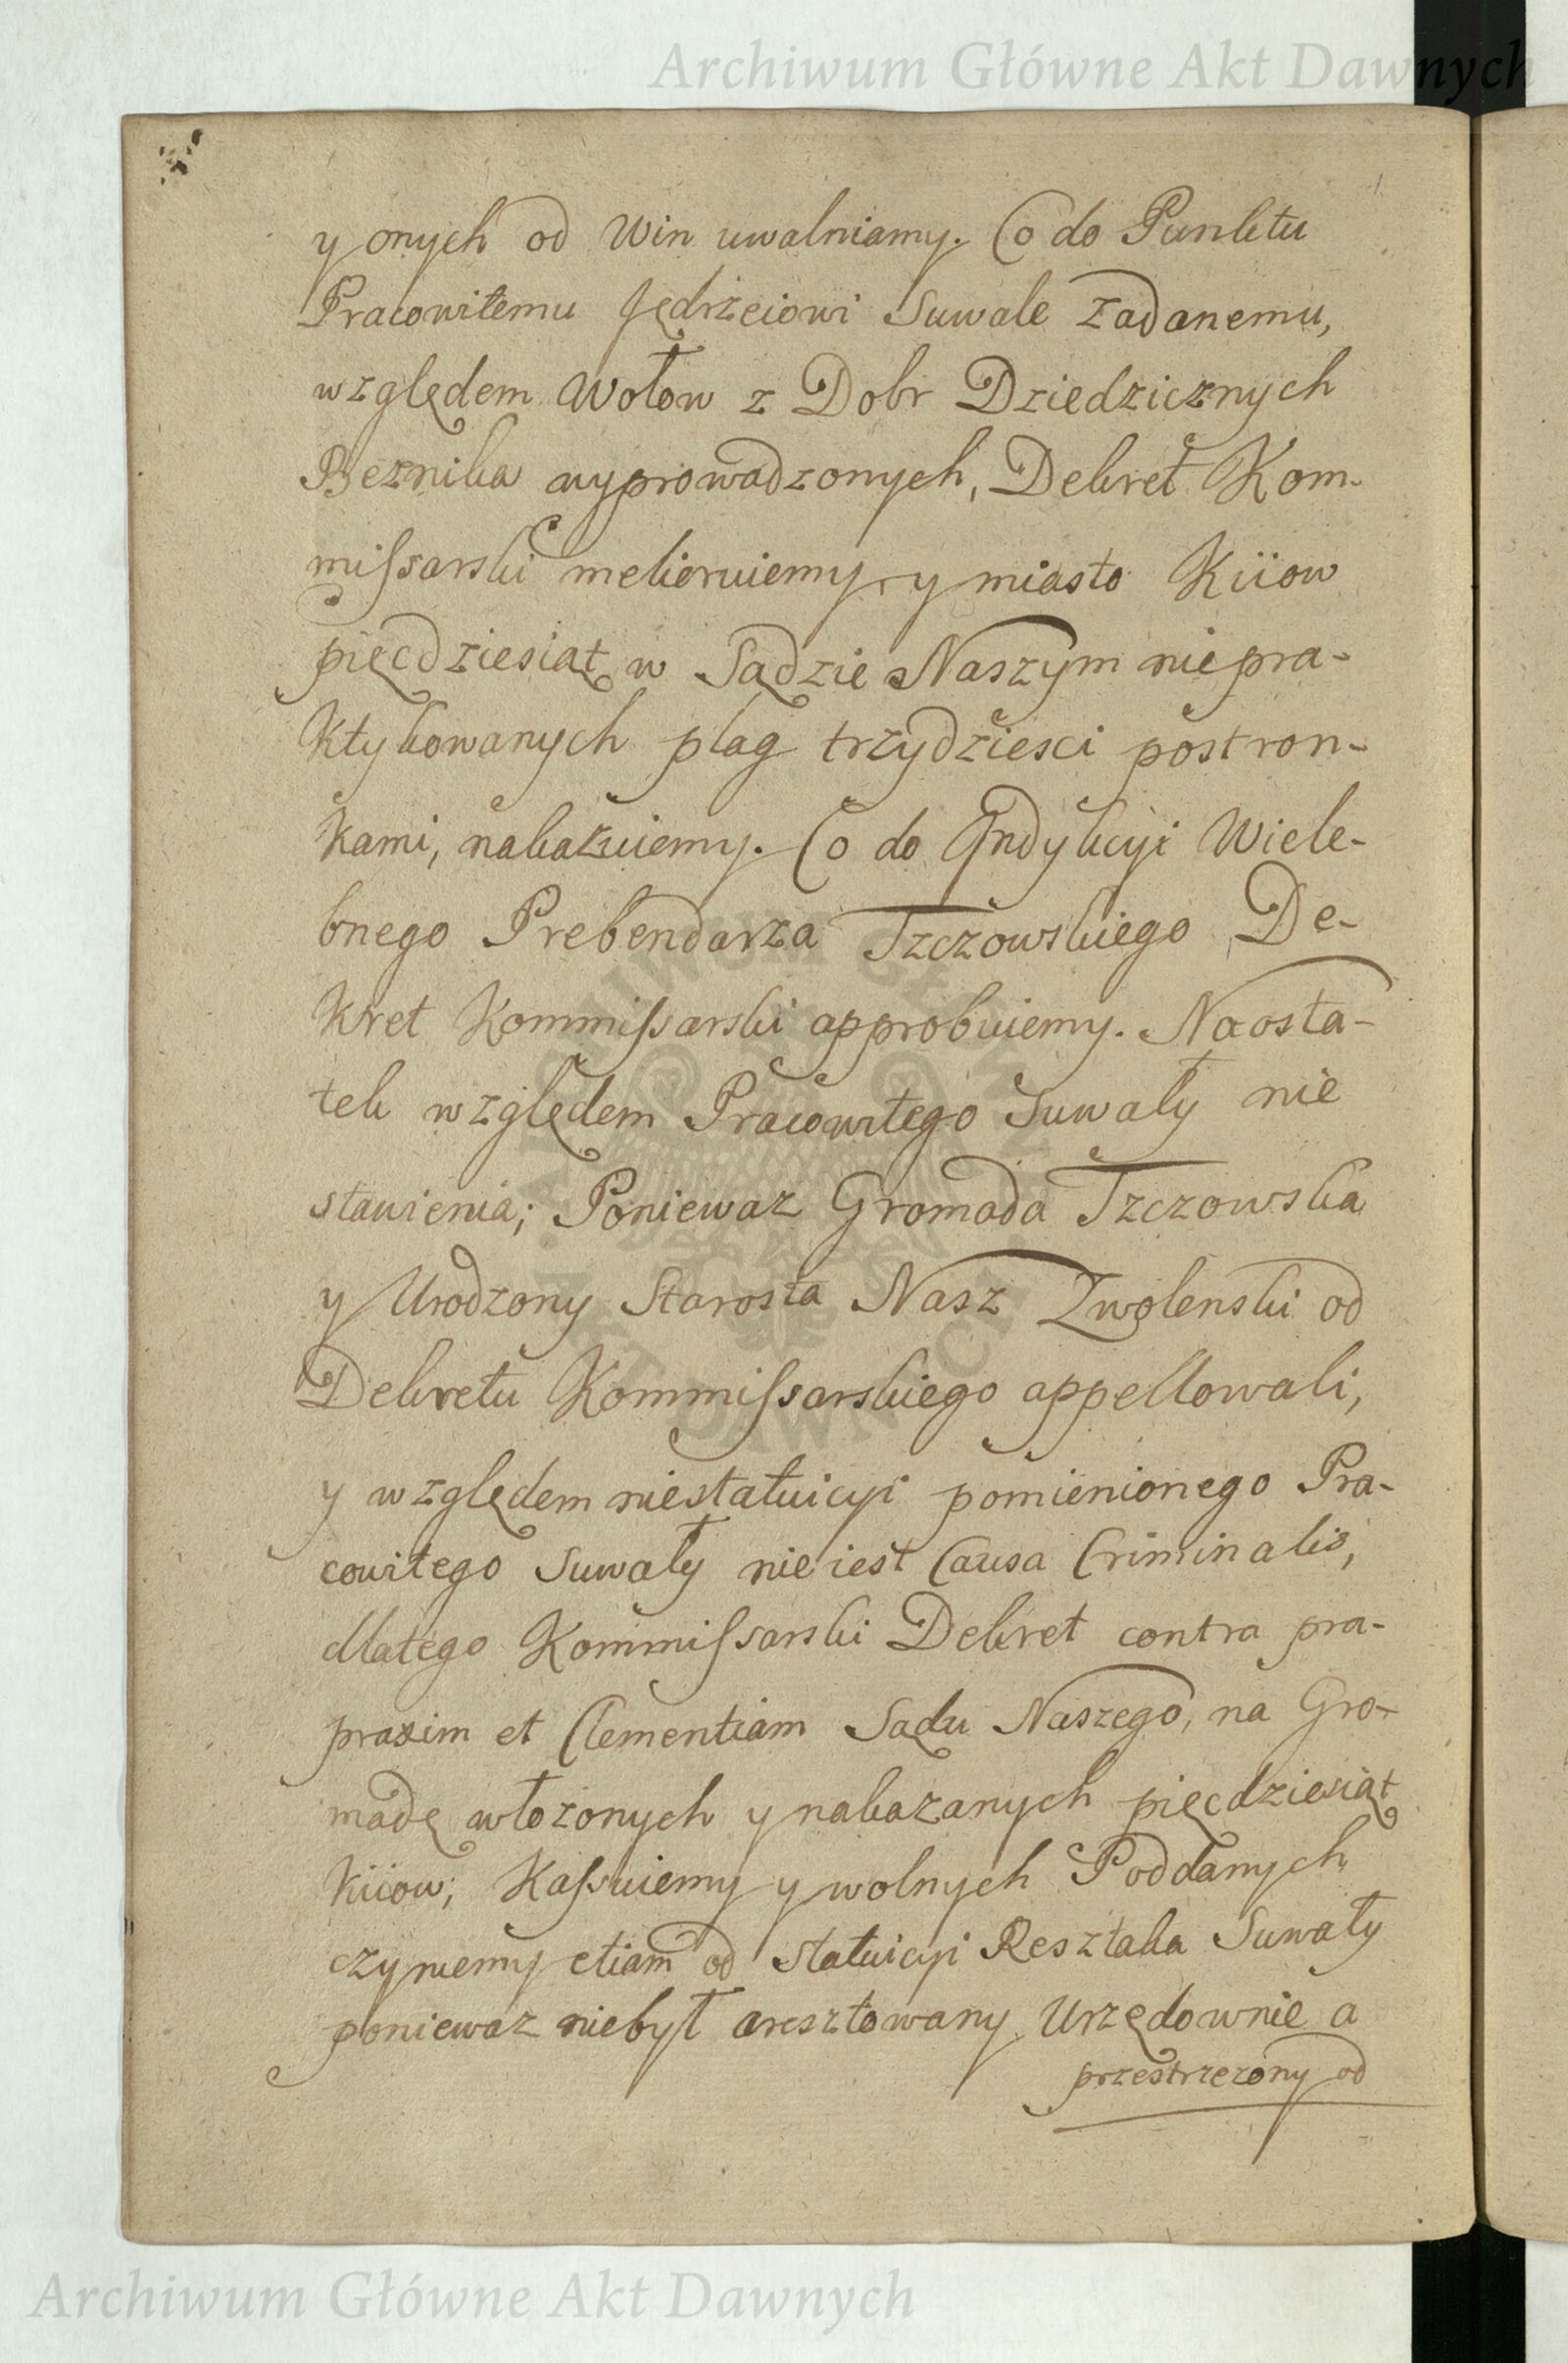 Archiwum Główne Akt Dawnych
y onych od Win uwalniamy. Co do Punktu
Pracowitemu Jędrzeiowi Suwale zadanemu,
względem Wołow z Dobr Dziedzicznych
Beznika wyprowadzonych, Dekret Kom-
missarski melioruiemy, y miasto Kiiow
pięcdziesiąt w Sądzie Naszym niepra-
ktykowanych plag trzydziesci postron-
kami, nakazuiemy. Co do Jndykcyi Wiele-
bnego Prebendarza Tzczowskiego De-
kret Kommissarski approbuiemy. Naosta-
tek względem Pracowitego Suwały nie
stawienia; Poniewaz Gromada Tzczowska
y Urodzony Starosta Nasz Zwolenski od
Dekretu Kommissarskiego appellowali,
y względem niestatuicyi pomienionego Pra-
cowitego Suwały nie iest Causa Criminalis,
dlatego Kommissarski Dekret contra pra-
praxim et Clementiam Sądu Naszego, na Gro-
madę włozonych y nakazanych pięcdziesiąt
Kiiow; Kassuiemy y wolnych Poddanych
czyniemy etiam od Statuicyi Resztaka Suwały
poniewaz niebył aresztowany Urzędownie a
przestrzezony od
Archiwum Główne Akt Dawnych